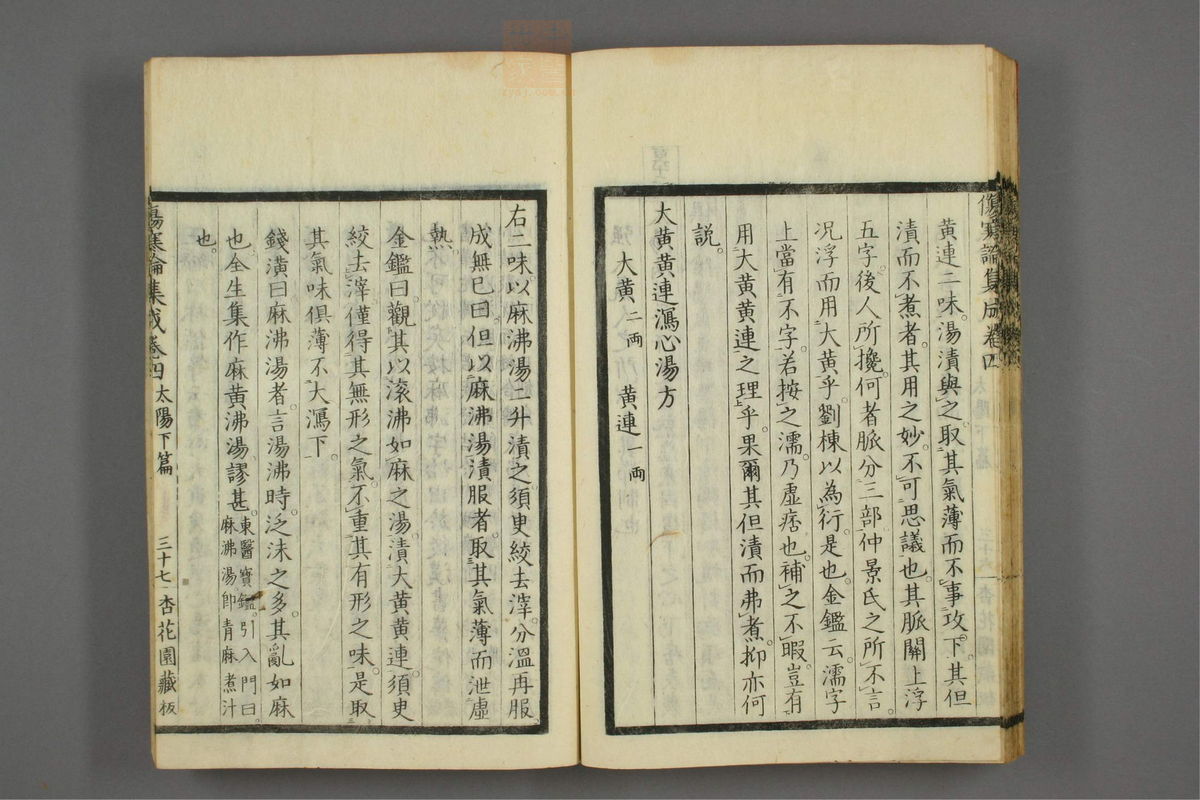 傷寒論集成卷四
黃連二味。湯漬與之。取其氣薄而不事攻下。其但
漬而不煮者。其用之妙。不可思議也。其脈關上浮
五字。後人所攙。何者脈分三部。仲景氏之所不言。
况浮而用大黃乎。劉棟以為衍。是也。金鑑云。濡字
上當有不字。若按之濡。乃虛痞也。補之不暇。豈有
用大黃黃連之理乎。果爾其但漬而弗煮。抑亦何
說。
大黃黃連瀉心湯方
大黃二兩 黃連一兩
右二味。以麻沸湯二升漬之。須臾絞去滓。分溫再服。
成無已曰。但以麻沸湯漬服者。取其氣薄而泄虛
熱。
金鑑曰。觀其以滾沸如麻之湯。漬大黃黃連。須臾
絞去滓。僅得其無形之氣。不重其有形之味。是取
其氣味俱薄不大瀉下。
錢潢曰麻沸湯者。言湯沸時。泛沫之多。其亂如麻
也。全生集作麻黃沸湯。謬甚。東醫寶鑑。引入門曰。麻沸湯卽青麻煮汁
也。
傷寒論集成卷四 太陽下篇 三十七 杏花園藏板